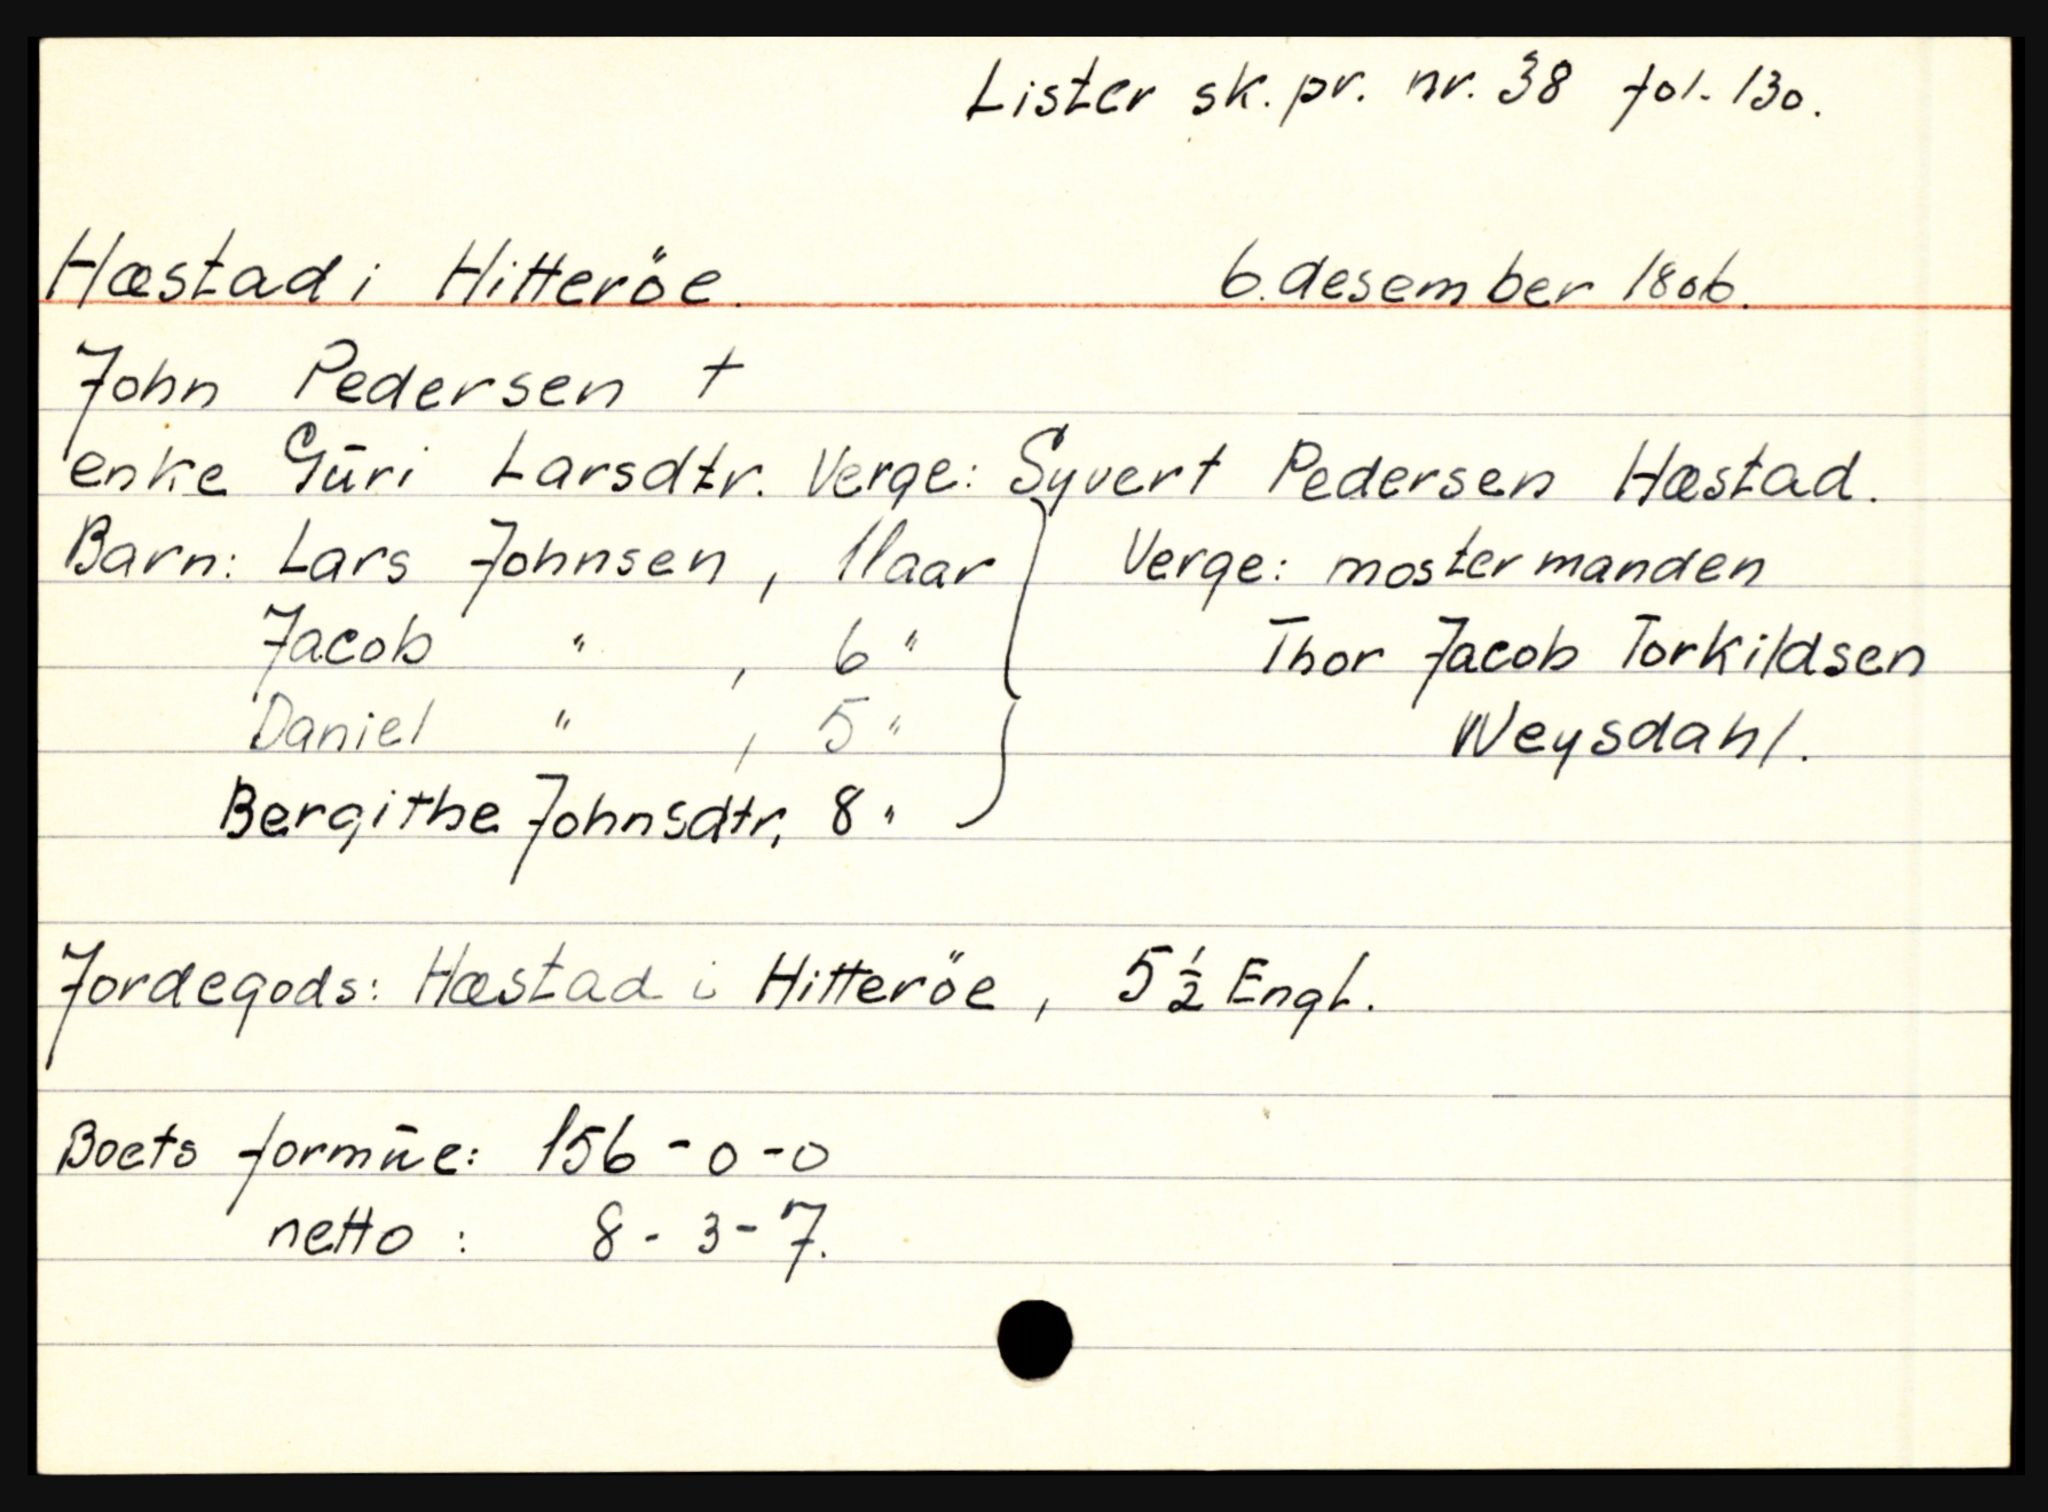 Lister sk. pr. nr. 38 fol. 130.
Hæstad i Hitteröe. 6. desember 1806.
John Pedersen †
enke Gūri Larsdtr. Verge: Syvert Pedersen Hæstad.
Barn: Lars Johnsen, 11 aar } Verge: mostermanden
Jacob " , 6 " Thor Jacob Torkildsen
Daniel " , 5 " Weysdahl.
Bergithe Johnsdtr, 8 "
Jordegods: Hæstad i Hitteröe, 5 1/2 Engl.
Boets formūe: 156 - 0 - 0
netto: 8 - 3 - 7.